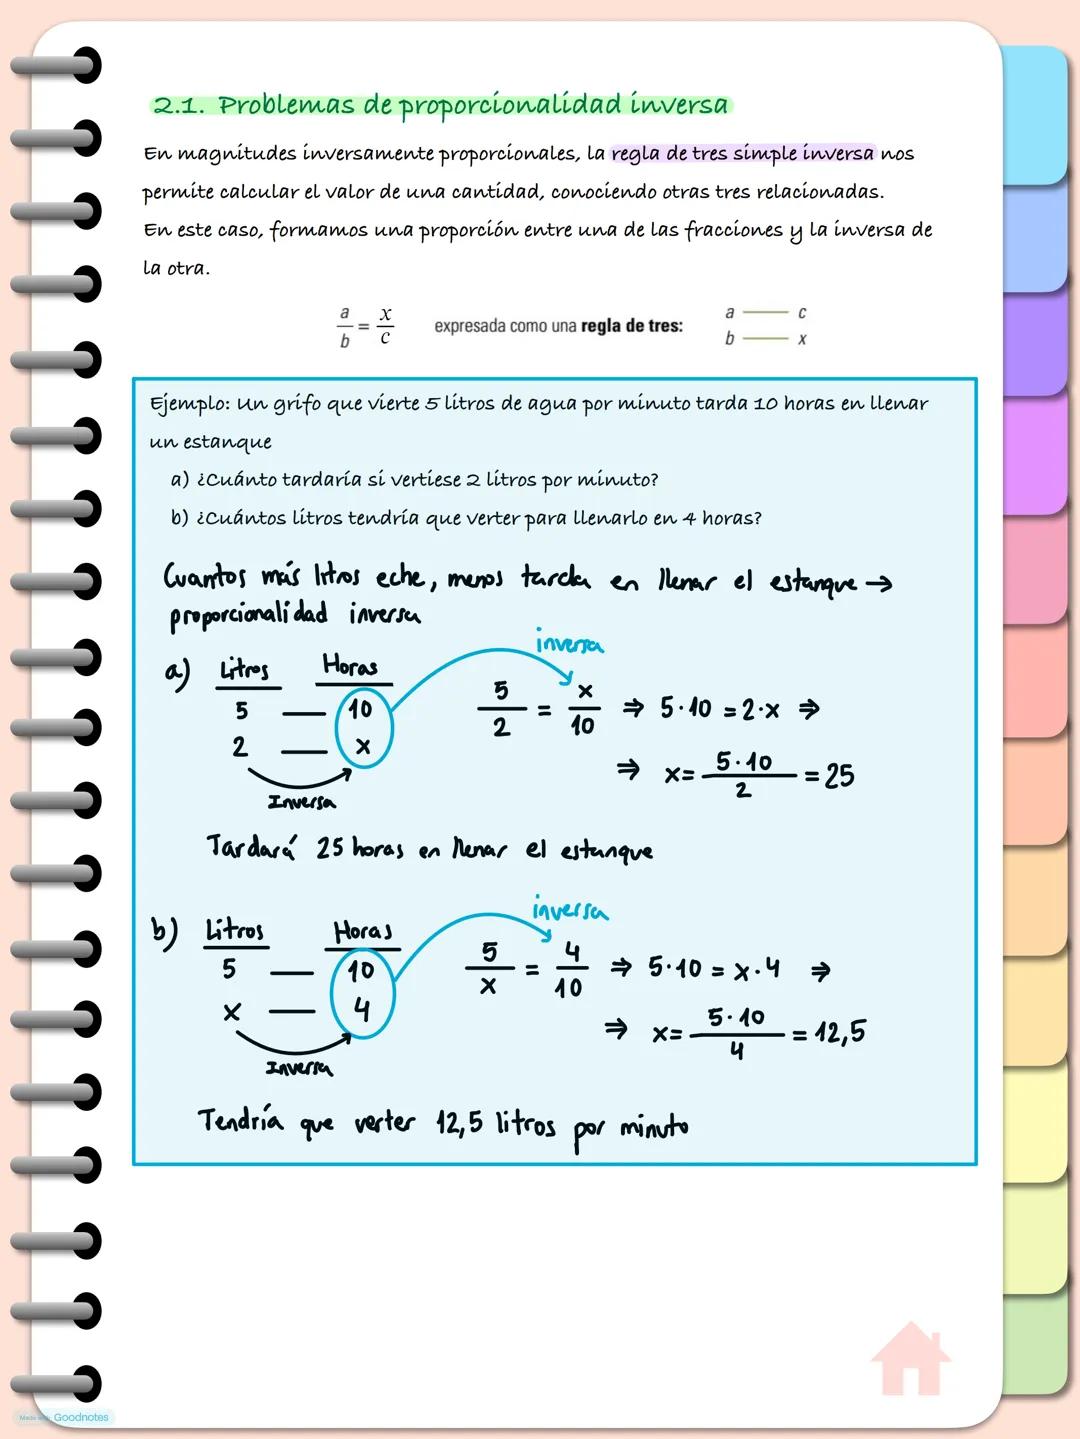 2.1. Problemas de proporcionalidad inversa
En magnitudes inversamente proporcionales, la regla de tres simple inversa nos
permite calcular el valor de una cantidad, conociendo otras tres relacionadas.
En este caso, formamos una proporción entre una de las fracciones y la inversa de
la otra.
a/b = x/c expresada como una regla de tres: a — c
b — x
Ejemplo: Un grifo que vierte 5 litros de agua por minuto tarda 10 horas en llenar
un estanque
a) ¿Cuánto tardaría si vertiese 2 litros por minuto?
b) ¿Cuántos litros tendría que verter para llenarlo en 4 horas?
Cuantos más litros eche, menos tarda en llenar el estanque →
proporcionalidad inversa
inversa
a) Litros Horas
5 — 10 5/2 = x/10 ⇒ 5·10 = 2·x ⇒
2 — x
⇒ x = 5·10/2 = 25
Inversa
Tardará 25 horas en llenar el estanque
inversa
b) Litros Horas
5 — 10 5/x = 4/10 ⇒ 5·10 = x·4 ⇒
x — 4
⇒ x = 5·10/4 = 12,5
Inversa
Tendría que verter 12,5 litros por minuto
Made with Goodnotes